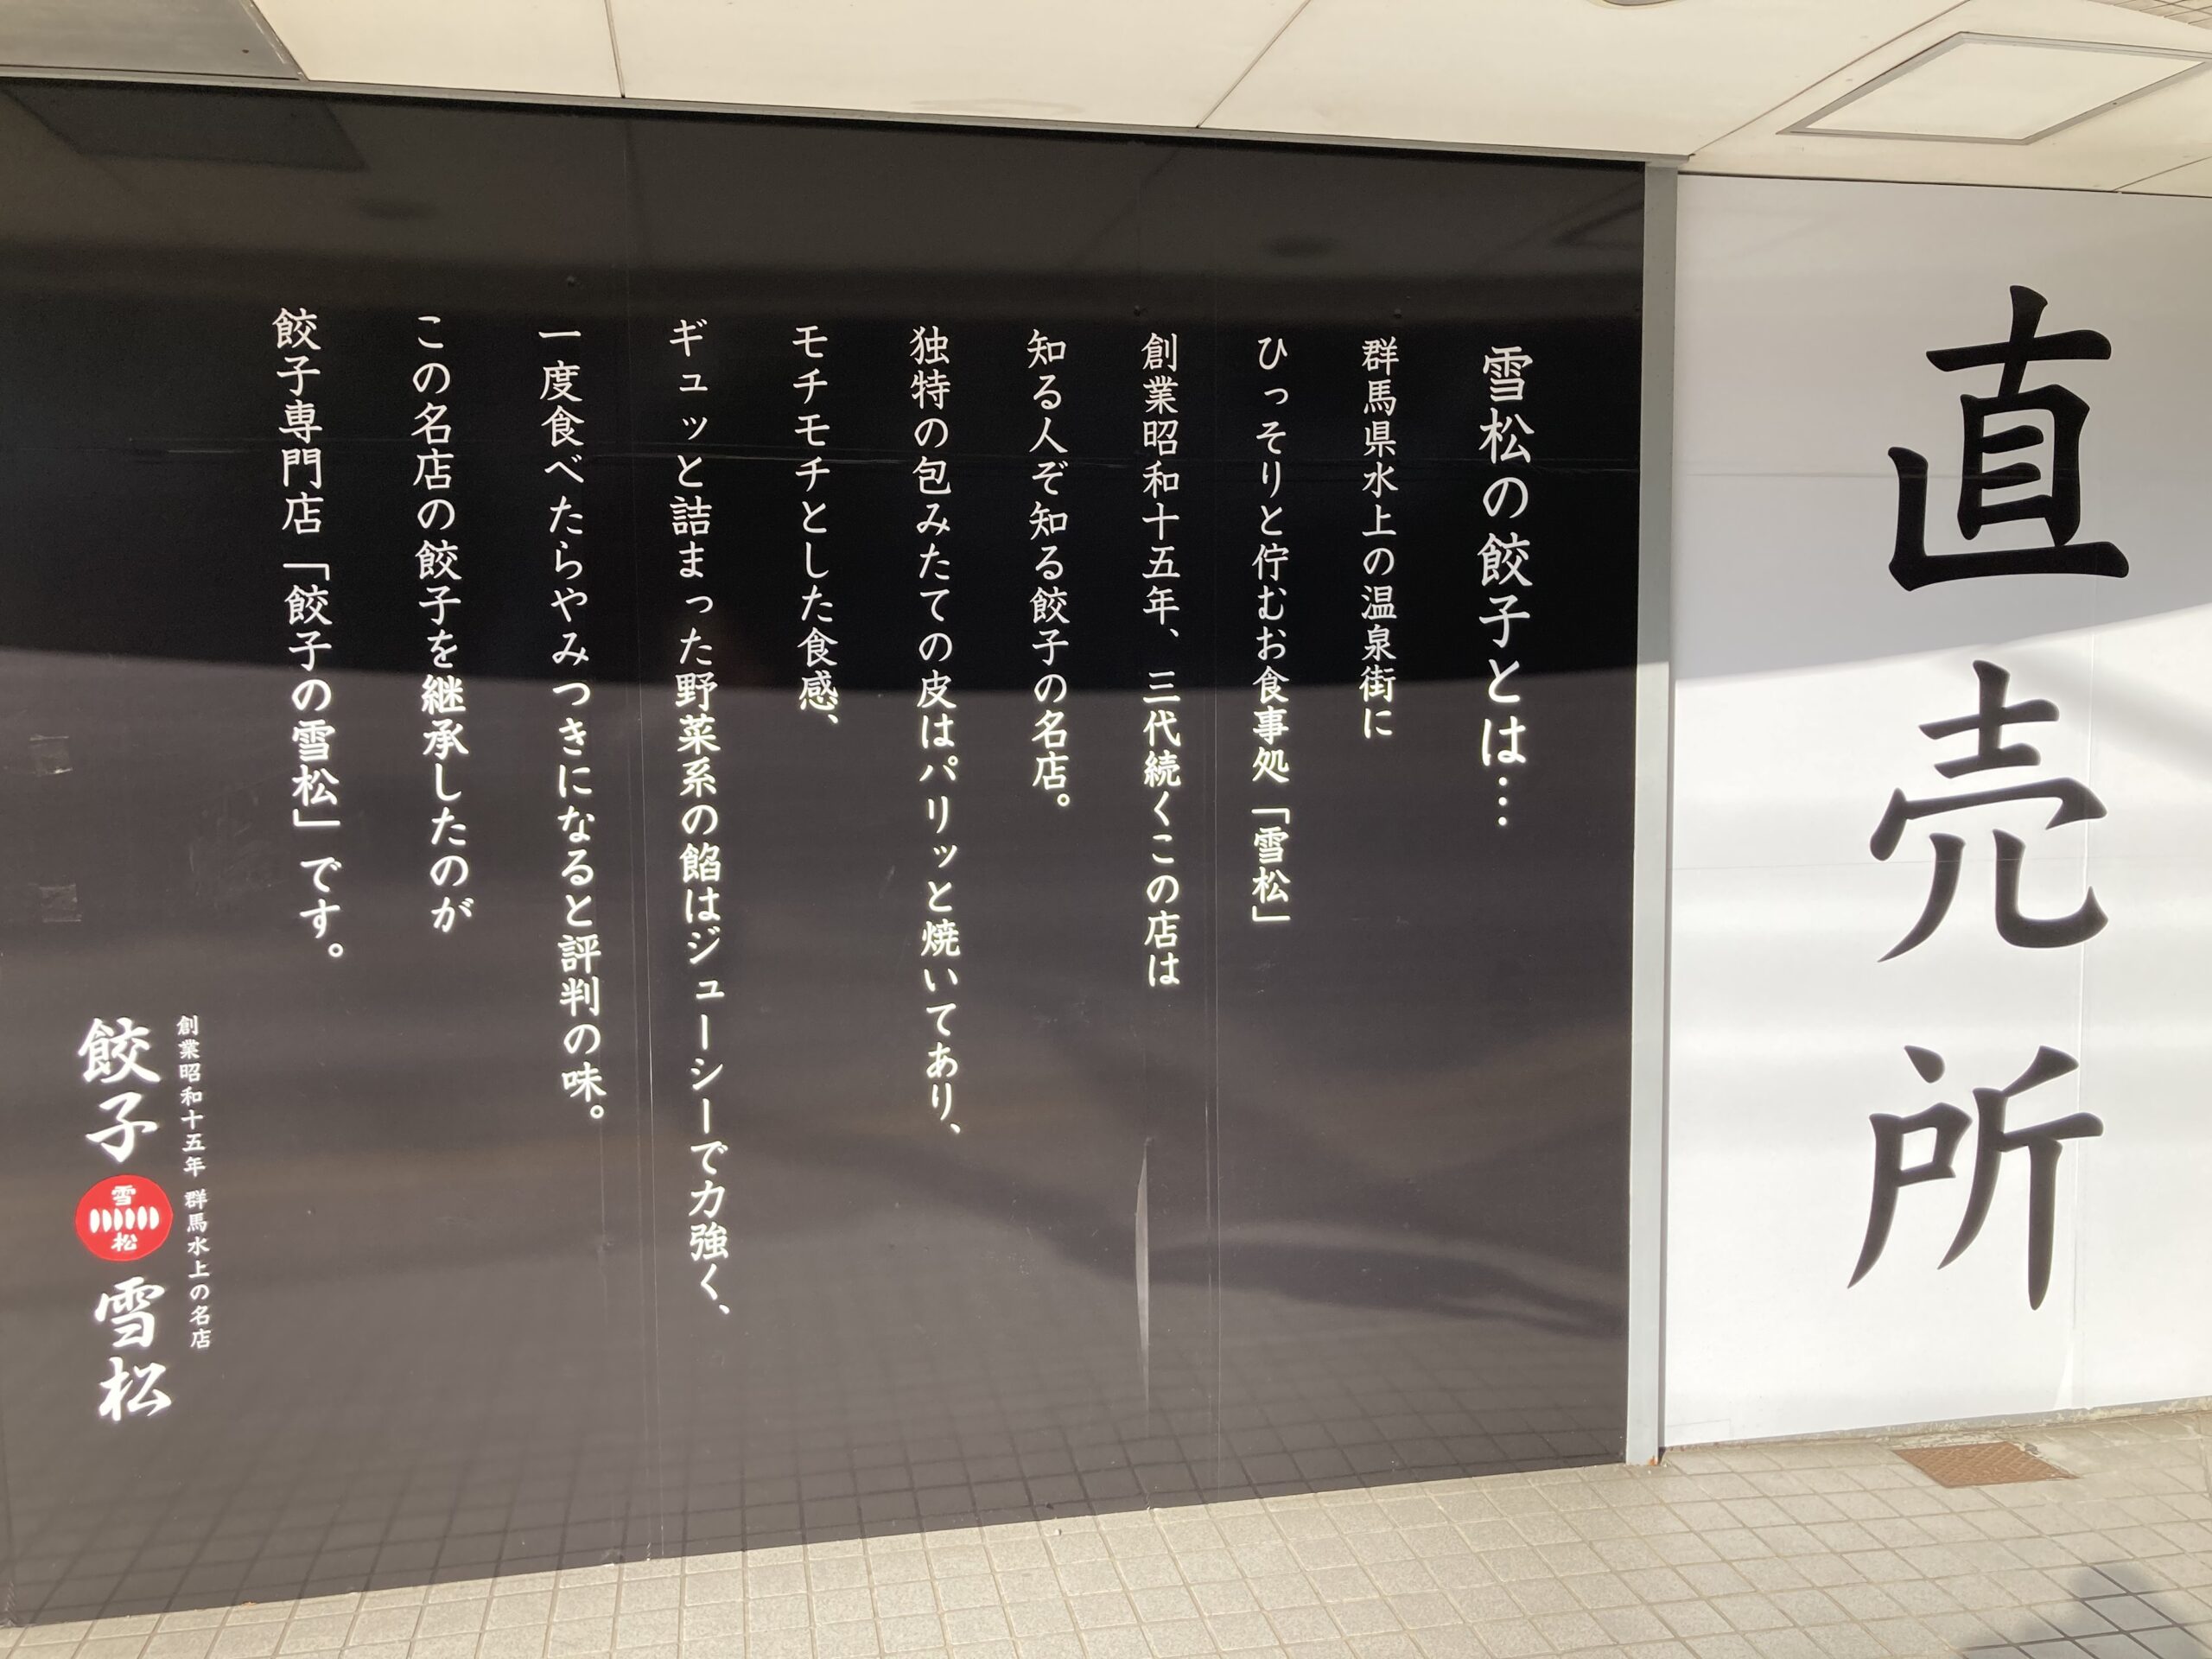 直売所
雪松の餃子とは…
群馬県水上の温泉街に
ひっそりと佇むお食事処「雪松」
創業昭和十五年、三代続くこの店は
知る人ぞ知る餃子の名店。
独特の包みたての皮はパリッと焼いてあり、
モチモチとした食感、
ギュッと詰まった野菜系の餡はジューシーで力強く、
一度食べたらやみつきになると評判の味。
この名店の餃子を継承したのが
餃子専門店「餃子の雪松」です。
創業昭和十五年 群馬水上の名店
餃子
雪
松
雪松